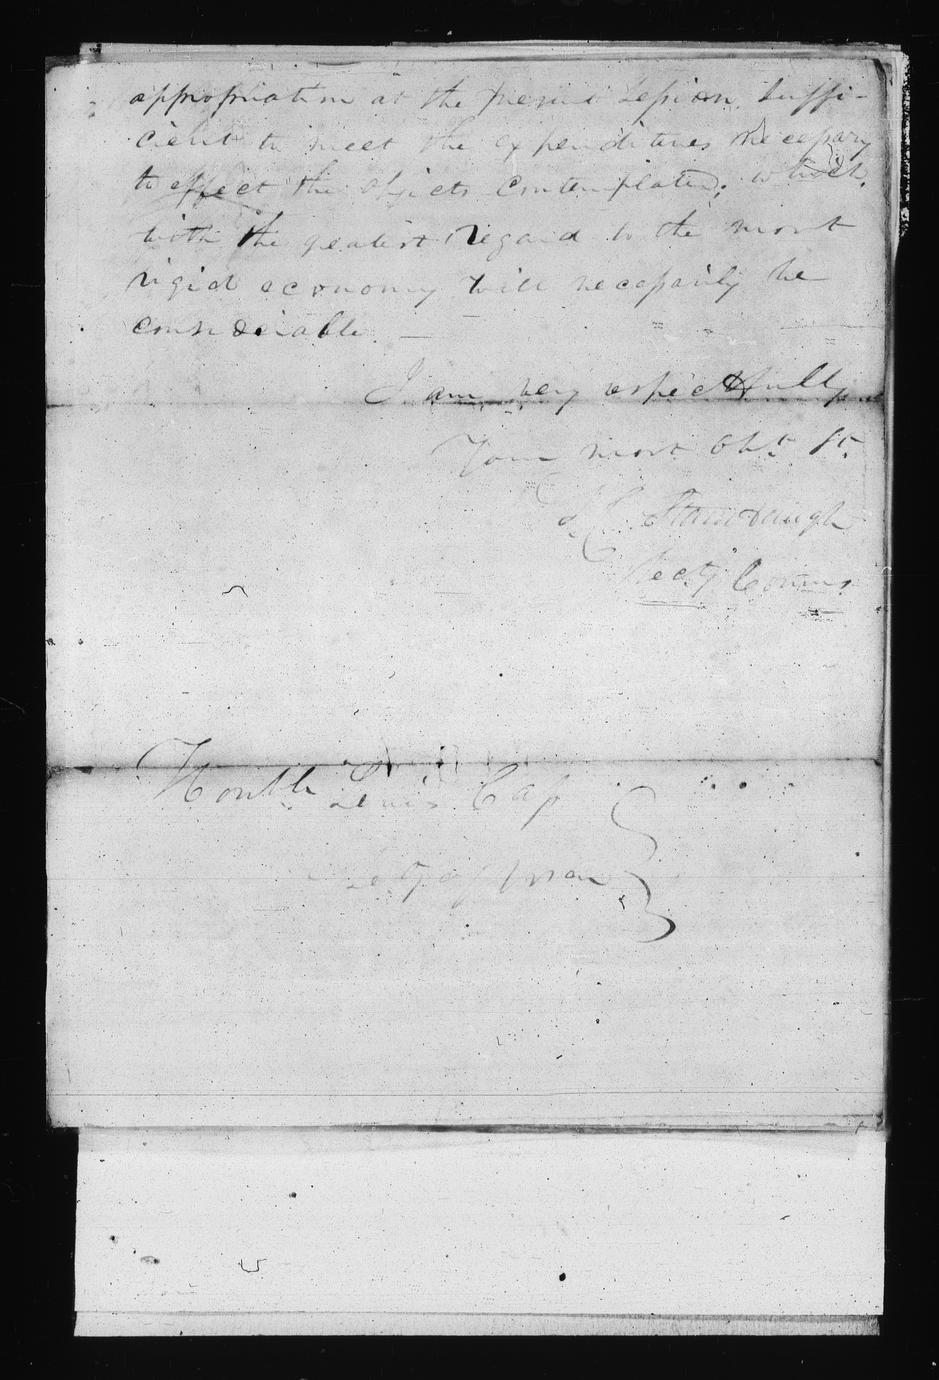 appropriation at the present Session, suffi-
cient to meet the expenditures necessary
to effect the objects contemplated; which,
with the greatest regard to the most
rigid economy will necessarily be
considerable. —
I am very respectfully
Your most Obt. St.
S. C. Stambaugh
Secty Comrs.
Honble Lewis Cass
Secy of War